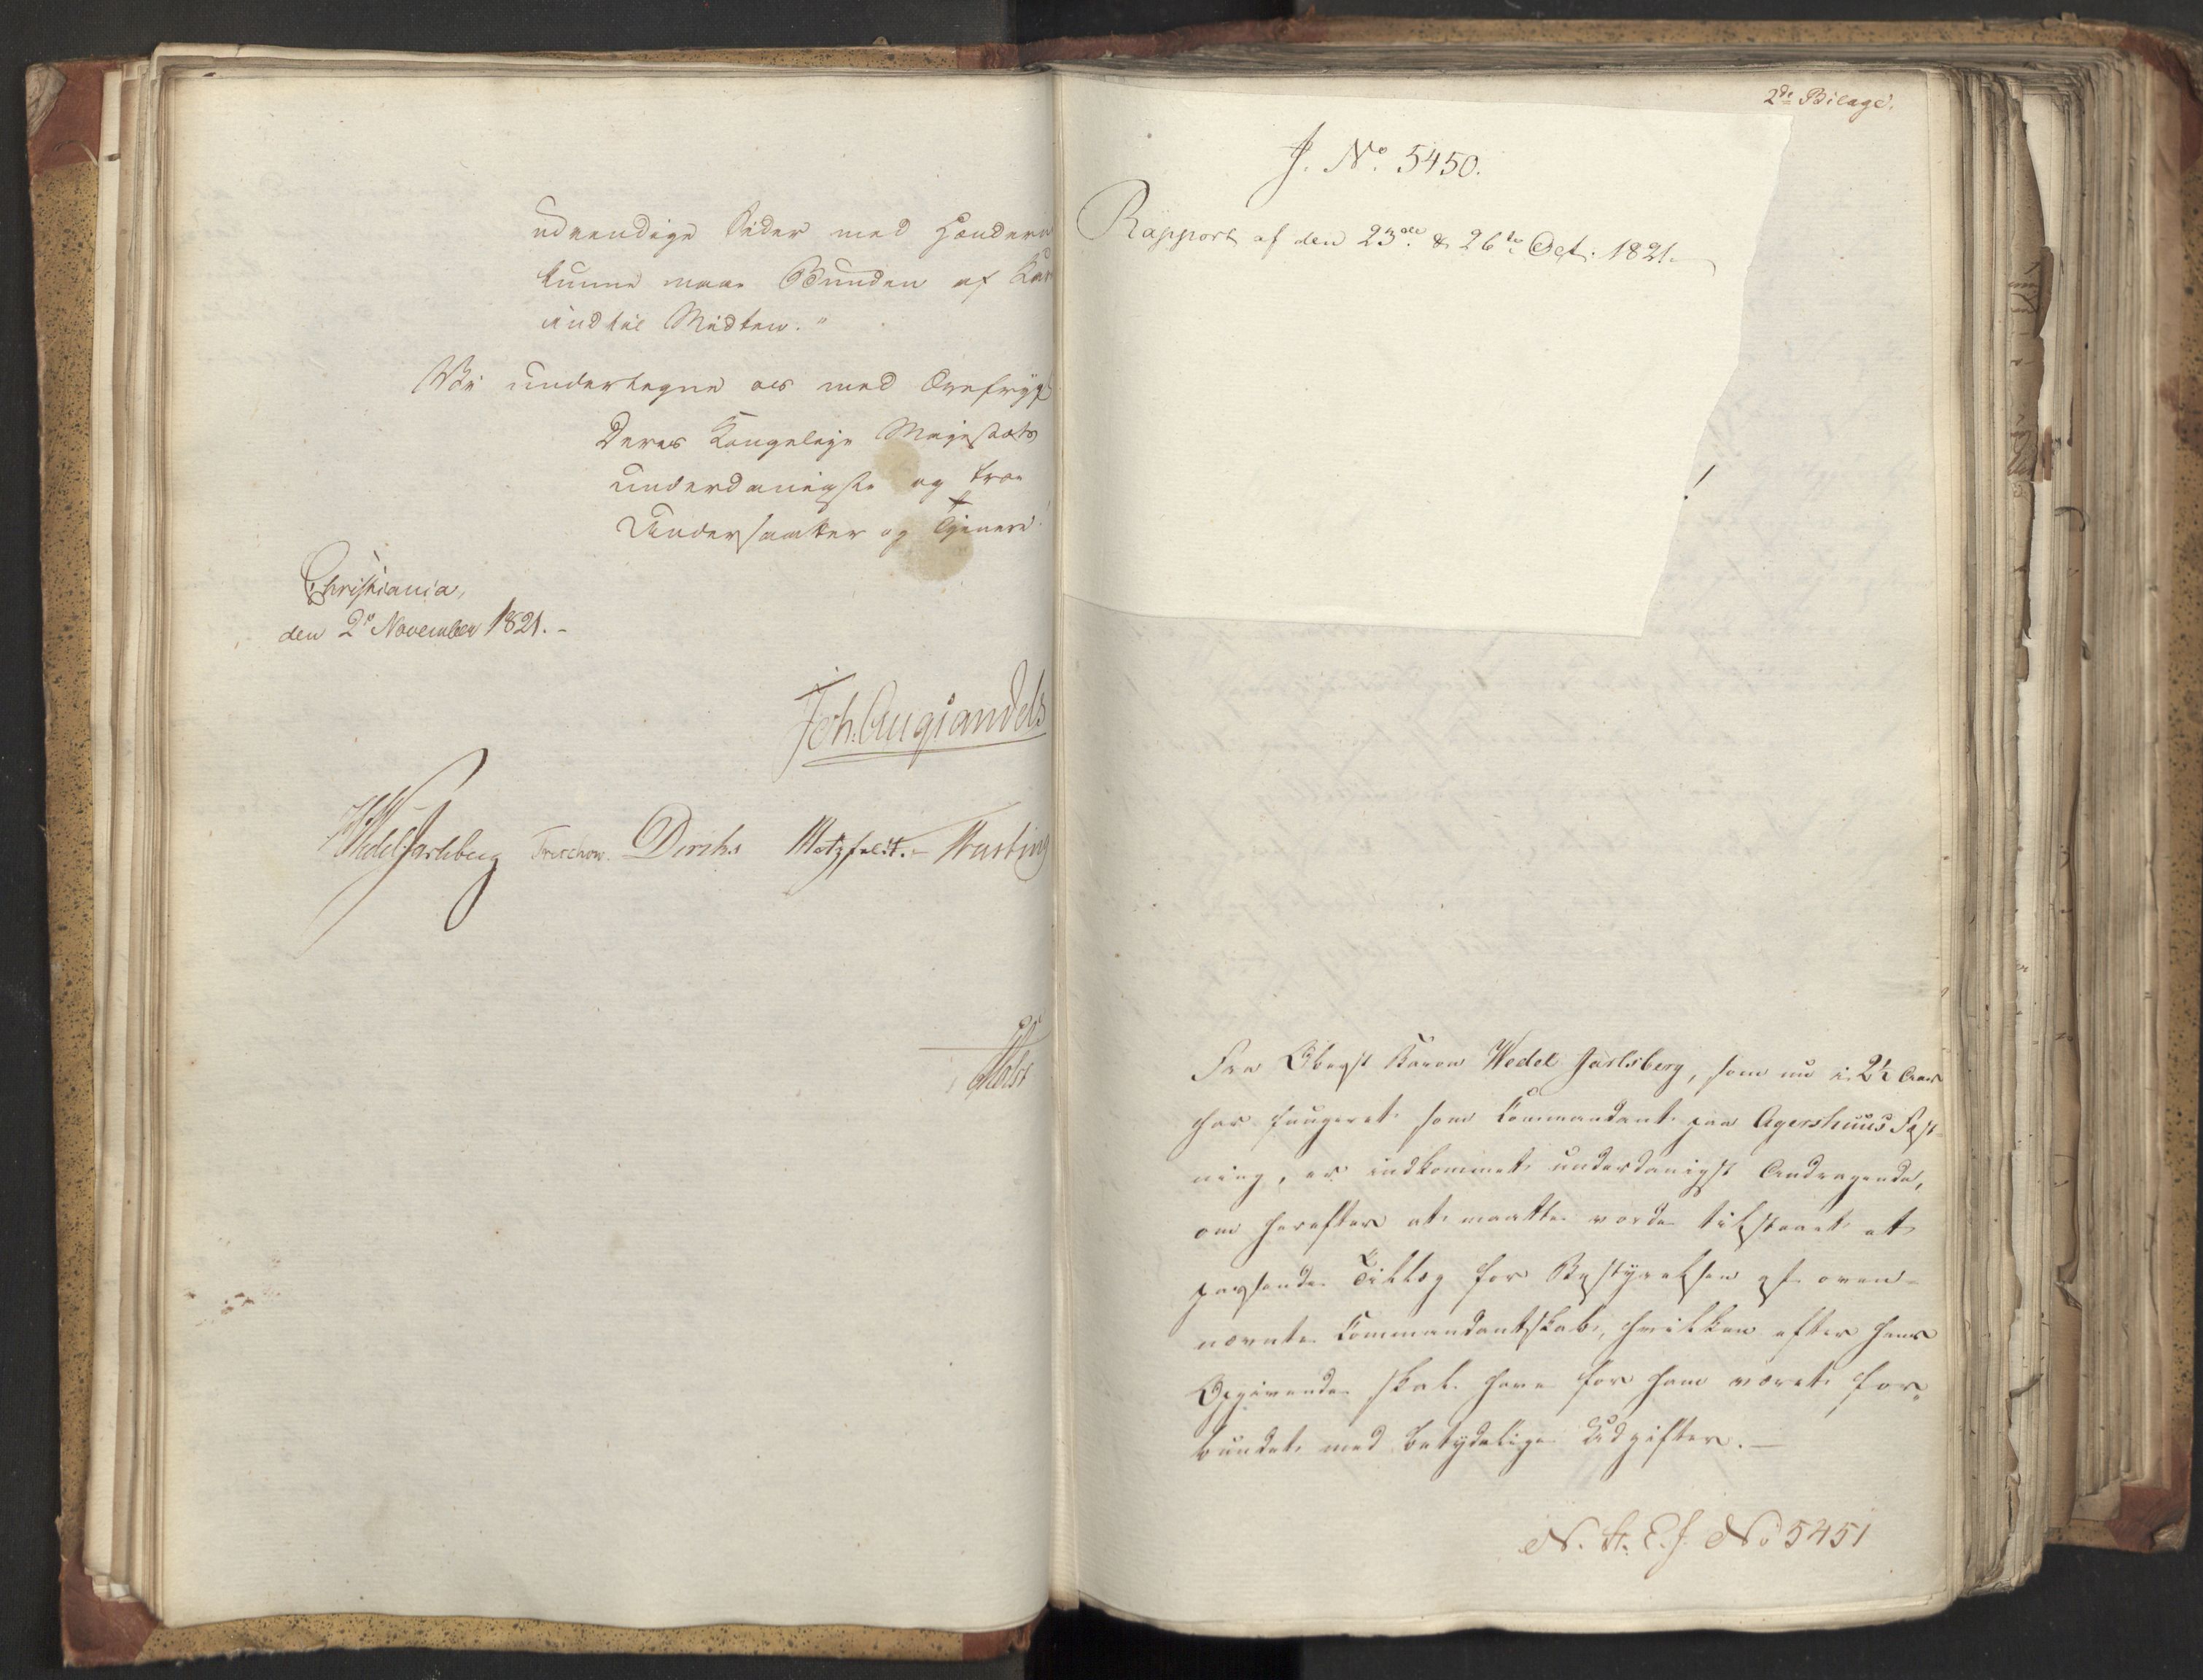 udvendige Sider med Hænderne
kunne naae Bunden af Kar
indtil Midten."
Vi undertegne os med Ærefrygt
Deres Kongelige Majestæts
underdanigste og troe
Undersaatter og Tjenere.
Christiania,
den 2n November 1821.-
Joh: Aug Sandels
HWedel Jarlsberg Treschow. Diriks Motzfeldt.- Fasting
Holst
2den Bilage.
J. No. 5450.
Rapport af den 23de & 26te Oct: 1821.
Fra Oberst Baron Wedel Jarlsberg, som nu i 2½ Aar
har fungeret som Commandant paa Agershuus Fæst-
ning, er indkommet underdanigst Andragende,
om herefter at maatte vorde tilstaaet et
passende Tillæg for Bestyrelsen af oven-
nævnte Commandantskab, hvilken efter hans
Opgivende skal have for ham været for-
bundet med betydelige Udgifter.—
N. St. E. J. No 5451